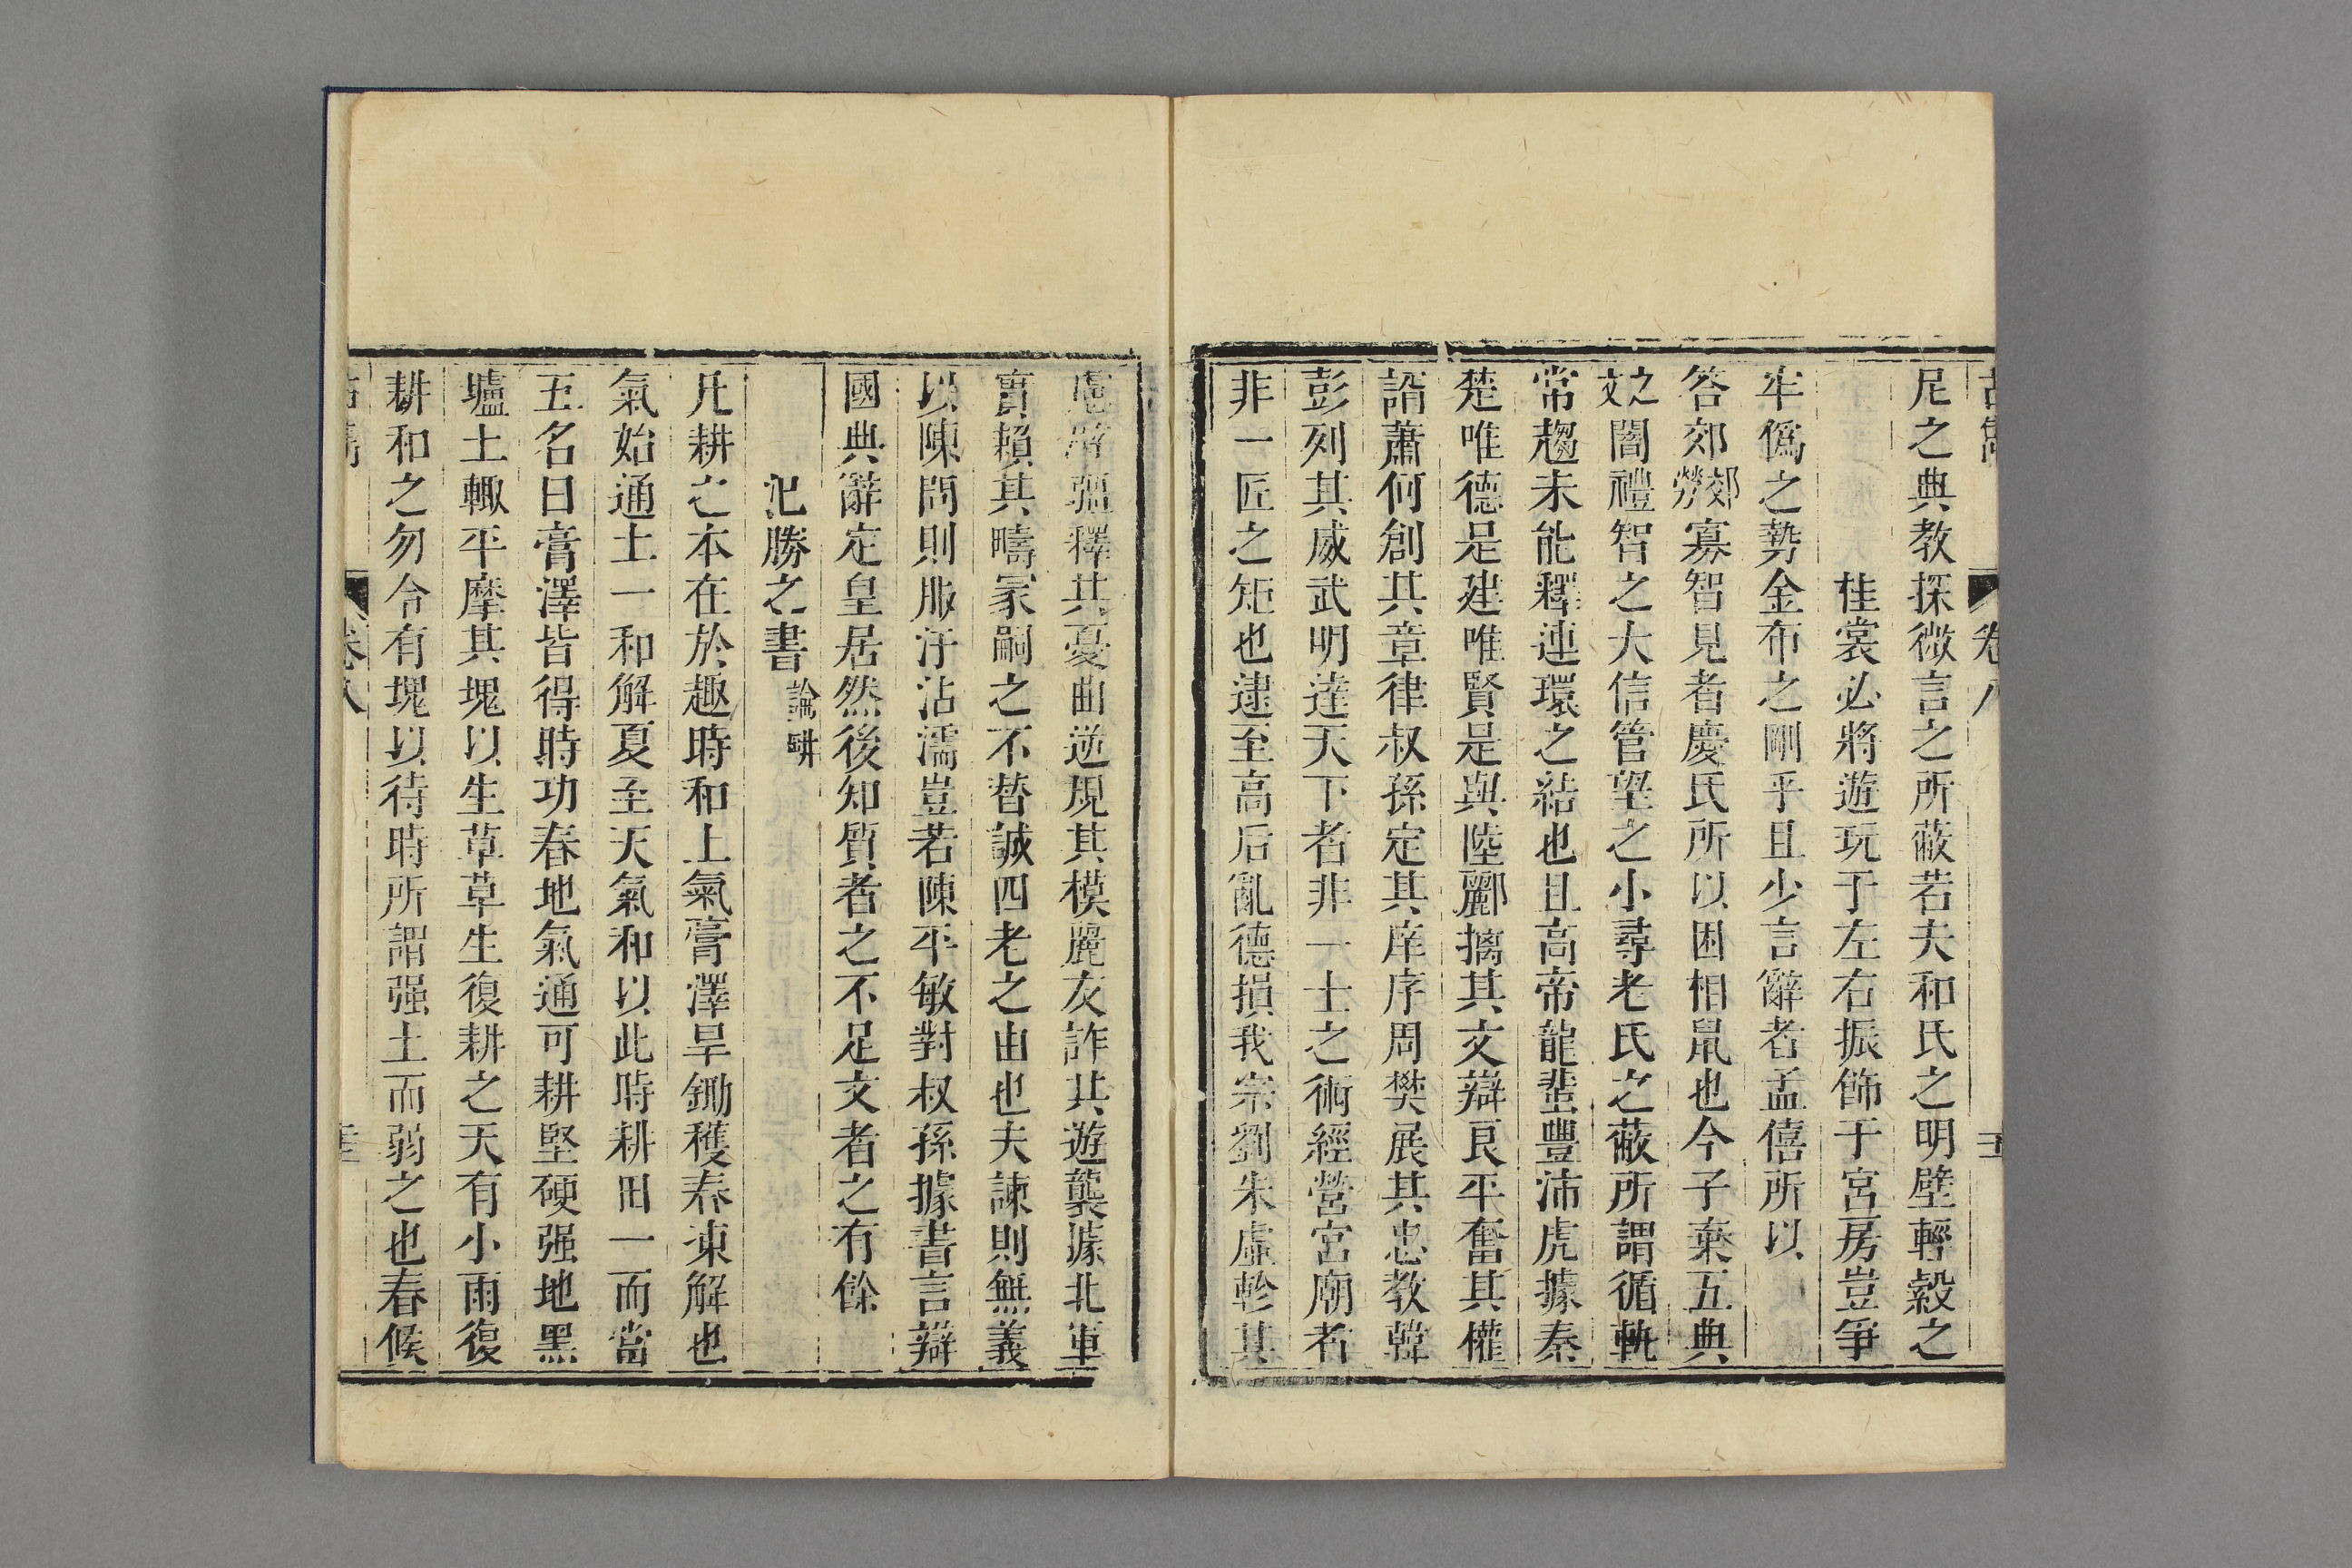 卷八
尼之典教探微言之所蔽若夫和氏之明壁輕縠之
桂裳必將遊玩于左右振飾于宮房豈爭
牢僞之勢金布之剛乎且少言辭者孟僖所以
答郊郊勞寡智見者慶氏所以困相鼠也今子棄五典
之文闇禮智之大信管望之小尋老氏之蔽所謂循軌
常趨未能釋連環之結也且高帝龍蜚豐沛虎據秦
楚唯德是建唯賢是與陸酈摛其文辯良平奮其權
諝蕭何創其章律叔孫定其庠序周樊展其忠教韓
彭列其威武明達天下者非一士之術經營宮廟者
非一匠之矩也逮至高后亂德損我宗劉朱虛軫其
慮辟彊釋其憂曲逆規其模麗友詐其遊襲據北軍
實賴其疇冢嗣之不替誠四老之由也夫諫則無義
以陳問則服汗沾濡豈若陳平敏對叔孫據書言辯
國典辭定皇居然後知質者之不足文者之有餘
氾勝之書論耕
凡耕之本在於趣時和土氣膏澤旱鋤穫春凍解也
氣始通土一和解夏至天氣和以此時耕田一而當
五名曰膏澤皆得時功春地氣通可耕堅硬强地黑
壚土輙平摩其塊以生草草生復耕之天有小雨復
耕和之勿令有塊以待時所謂强土而弱之也春候
卷八